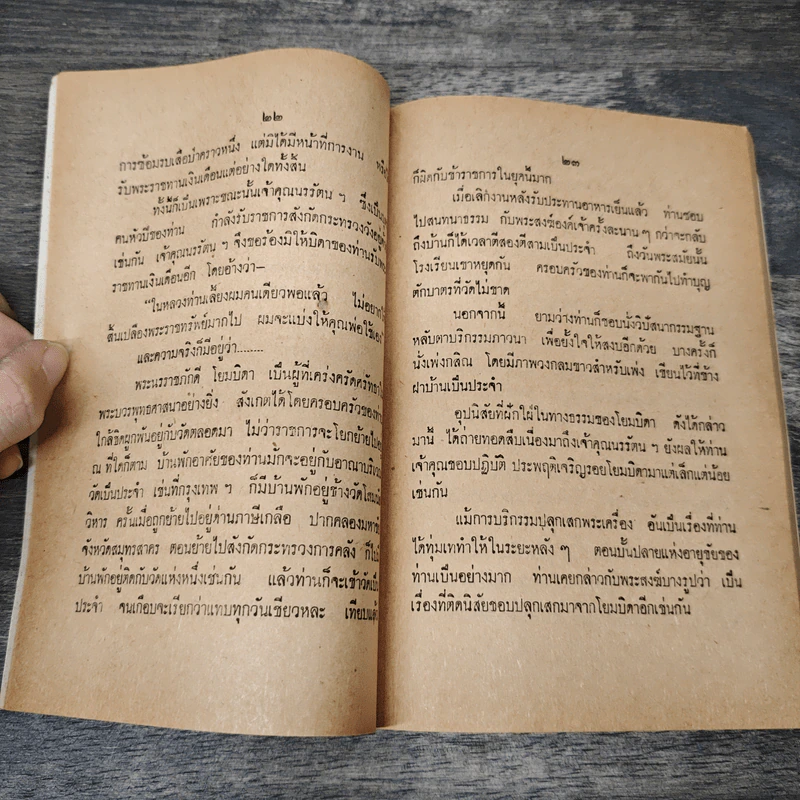 ๒๒
การซ้อมรบเสือป่าคราวหนึ่ง แต่มิได้มีหน้าที่การงาน
รับพระราชทานเงินเดือนแต่อย่างใดทั้งสิ้น
ทั้งนี้ก็เป็นเพราะขณะนั้นเจ้าคุณนรรัตน ฯ ซึ่งเป็น
คนหัวปีของท่าน กำลังรับราชการสังกัดกระทรวงวังอยู่
เช่นกัน เจ้าคุณนรรัตน ฯ จึงขอร้องมิให้บิดาของท่านรับ
ราชทานเงินเดือนอีก โดยอ้างว่า—
“ในหลวงท่านเลี้ยงผมคนเดียวพอแล้ว ไม่อยาก
สิ้นเปลืองพระราชทรัพย์มากไป ผมจะแบ่งให้คุณพ่อใช้เอง
และความจริงก็มีอยู่ว่า........
พระนรราชภักดี โยมบิดา เป็นผู้ที่เคร่งครัดศรัทธา
พระบวรพุทธศาสนาอย่างยิ่ง สังเกตได้โดยครอบครัวของ
ใกล้ชิดผูกพันอยู่กับวัดตลอดมา ไม่ว่าราชการจะโยกย้ายไป
ณ ที่ใดก็ตาม บ้านพักอาศัยของท่านมักจะอยู่กับอาณาบริเวณ
วัดเป็นประจำ เช่นที่กรุงเทพ ฯ ก็มีบ้านพักอยู่ข้างวัดโสมนัส
วิหาร ครั้นเมื่อถูกย้ายไปอยู่ด่านภาษีเกลือ ปากคลองมหาชัย
จังหวัดสมุทรสาคร ตอนย้ายไปสังกัดกระทรวงการคลัง ก็
บ้านพักอยู่ติดกับวัดแห่งหนึ่งเช่นกัน แล้วท่านก็จะเข้าวัดเป็น
ประจำ จนเกือบจะเรียกว่าแทบทุกวันเชียวหละ เทียบ
๒๓
ก็ผิดกับข้าราชการในยุคนี้มาก
เมื่อเลิกงานหลังรับประทานอาหารเย็นแล้ว ท่านชอบ
ไปสนทนาธรรม กับพระสงฆ์องค์เจ้าครั้งละนาน ๆ กว่าจะกลับ
ถึงบ้านก็ได้เวลาตีสองตีสามเป็นประจำ ถึงวันพระสมัยนั้น
โรงเรียนเขาหยุดกัน ครอบครัวของท่านก็จะพากันไปทำบุญ
ตักบาตรที่วัดไม่ขาด
นอกจากนี้ ยามว่างท่านก็ชอบนั่งวิปัสนากรรมฐาน
หลับตาบริกรรมภาวนา เพื่อยั้งใจให้สงบอีกด้วย บางครั้งก็
นั่งเพ่งกสิณ โดยมีภาพวงกลมขาวสำหรับเพ่ง เขียนไว้ที่ข้าง
ฝาบ้านเป็นประจำ
อุปนิสัยที่ฝักใฝ่ในทางธรรมของโยมบิดา ดังได้กล่าว
มานี้ ได้ถ่ายทอดสืบเนื่องมาถึงเจ้าคุณนรรัตน ฯ ยังผลให้ท่าน
เจ้าคุณชอบปฏิบัติ ประพฤติเจริญรอยโยมบิดามาแต่เล็กแต่น้อย
เช่นกัน
แม้การบริกรรมปลุกเสกพระเครื่อง อันเป็นเรื่องที่ท่าน
ได้ทุ่มเททำให้ในระยะหลัง ๆ ตอนบั้นปลายแห่งอายุขัยของ
ท่านเป็นอย่างมาก ท่านเคยกล่าวกับพระสงฆ์บางรูปว่า เป็น
เรื่องที่ติดนิสัยชอบปลุกเสกมาจากโยมบิดาอีกเช่นกัน